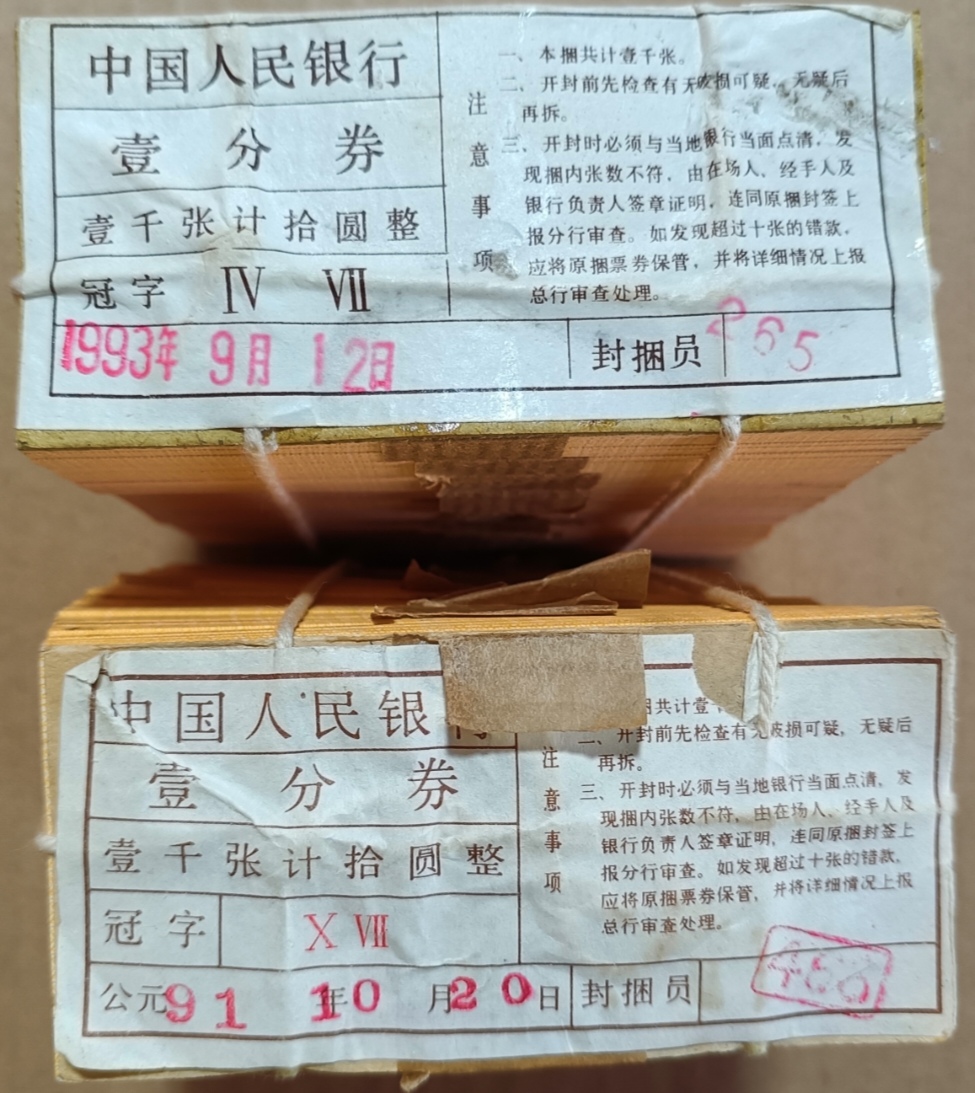 中国人民银行
壹分券
壹千张计拾圆整
冠字 Ⅳ Ⅶ
1993年 9月 12日
注意事项
一、本捆共计壹千张。
二、开封前先检查有无破损可疑，无疑后
再拆。
三、开封时必须与当地银行当面点清，发
现捆内张数不符，由在场人、经手人及
银行负责人签章证明，连同原捆封签上
报分行审查。如发现超过十张的错款，
应将原捆票券保管，并将详细情况上报
总行审查处理。
封捆员 265
中国人民银
壹分券
壹千张计拾圆整
冠字 Ⅹ Ⅶ
公元91年10月20日
注意事项
捆共计壹
二、开封前先检查有无破损可疑，无疑后
再拆。
三、开封时必须与当地银行当面点清，发
现捆内张数不符，由在场人、经手人及
银行负责人签章证明，连同原捆封签上
报分行审查。如发现超过十张的错款，
应将原捆票券保管，并将详细情况上报
总行审查处理。
封捆员